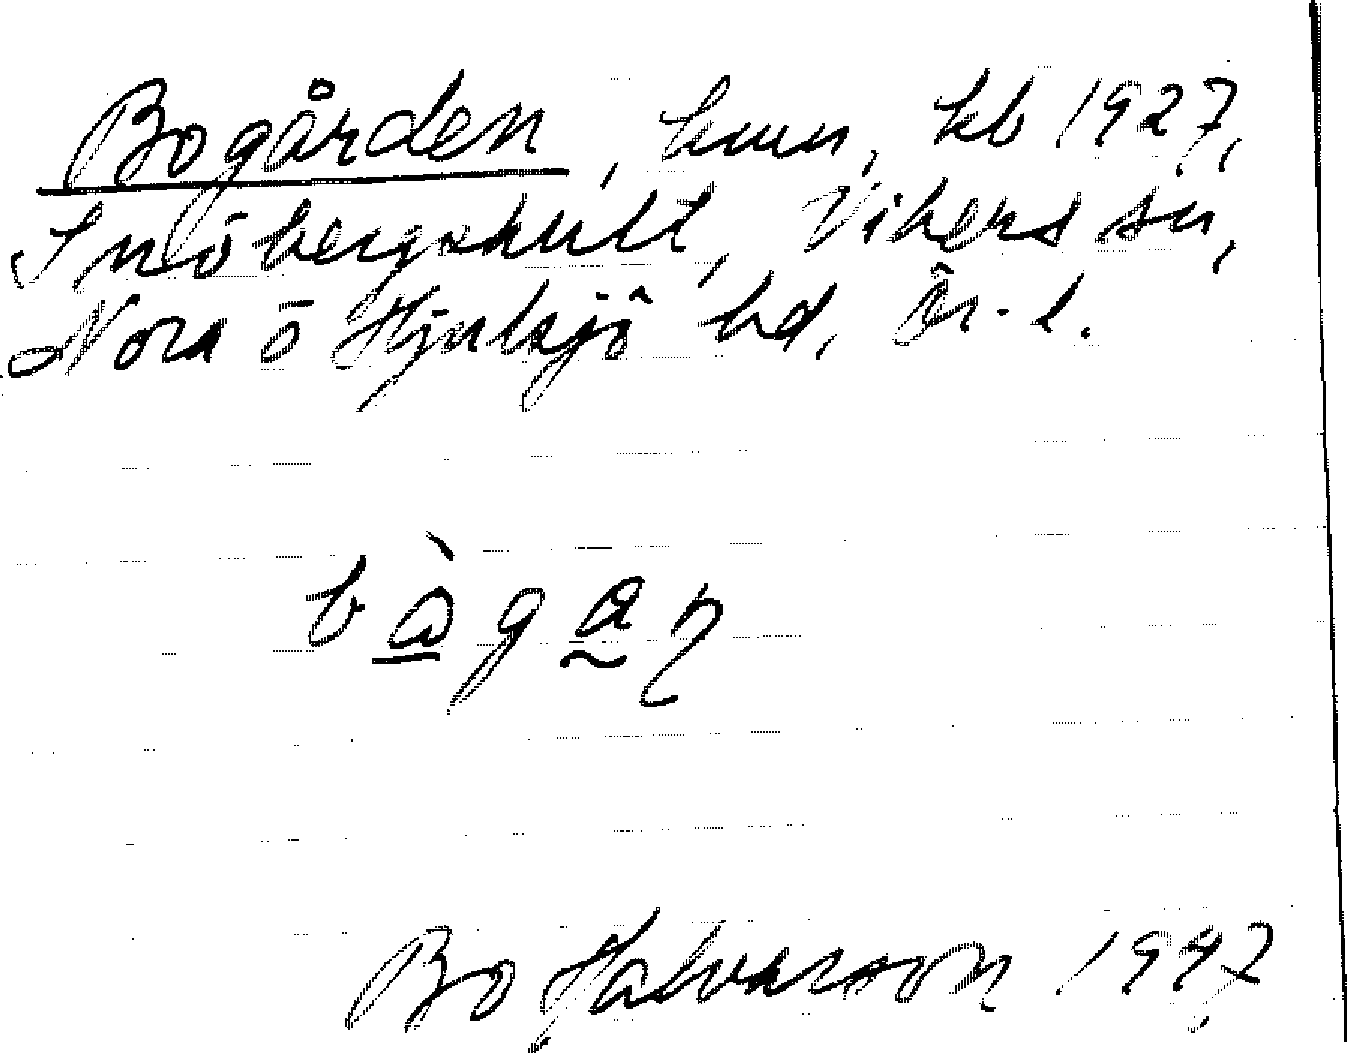 Bogården, hmn, kb 1927,
Snöbergshult, Vikers sn,
Nora o Hjulsjö hd, Ör. l.
Bo Halvarson 1997